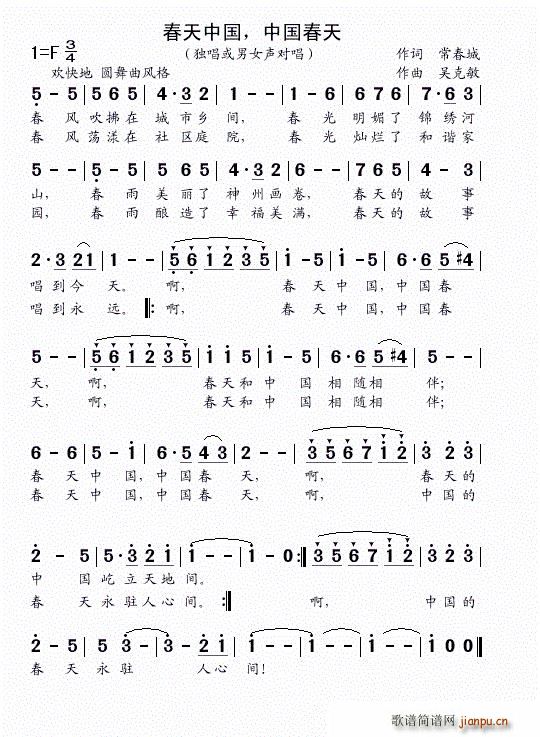 春天中国，中国春天
（独唱或男女声对唱）
1=F 3/4
作词 常春城
欢快地 圆舞曲风格
作曲 吴克敏
5 - 5 | 5 6 5 | 4·3 2 | 5 - - | 5 - 5 | 5 6 5 | 7·6 3 |
春 风 吹 拂 在 城 市 乡 间， 春 光 明 媚 了 锦 绣 河
春 风 荡 漾 在 社 区 庭 院， 春 光 灿 烂 了 和 谐 家
5 - - | 5 - 5 | 5 6 5 | 4·3 2 | 6 - - | 1 6 1 | 5 4 3 |
山， 春 雨 美 丽 了 神 州 画 卷， 春 天 的 故 事
园， 春 雨 酿 造 了 幸 福 美 满， 春 天 的 故 事
2·3 21 | 1 - - | 5 6 1 2 3 5 | 1 - 5 | 1 - 5 | 6·6 6 | 5 #4 |
唱 到 今 天。 啊， 春 天 中 国， 中 国 春
唱 到 永 远。 ‖: 啊， 春 天 中 国， 中 国 春
5 - - | 5 6 1 2 3 5 | 1 1 5 | 1 - 5 | 6·6 5 #4 | 5 - - |
天， 啊， 春 天 和 中 国 相 随 相 伴；
天， 啊， 春 天 和 中 国 相 随 相 伴；
6 - 6 | 5 - 1 | 6·5 4 3 | 2 - - | 3 5 6 7 1 2 | 3 2 3 |
春 天 中 国， 中 国 春 天， 啊， 春 天 的
春 天 中 国， 中 国 春 天， 啊， 中 国 的
2 - 5 | 5·3 2 1 | 1 - - | 1 - 0 :‖ 3 5 6 7 1 2 | 3 2 3 |
中 国 屹 立 天 地 间。
春 天 永 驻 人 心 间。 :‖ 啊， 中 国 的
2 - 5 | 5 - 3 | 2 - 1 | 1 - - | 1 - - | 1 0 0 ‖
春 天 永 驻 人 心 间！
歌谱简谱网
jianpu.cn